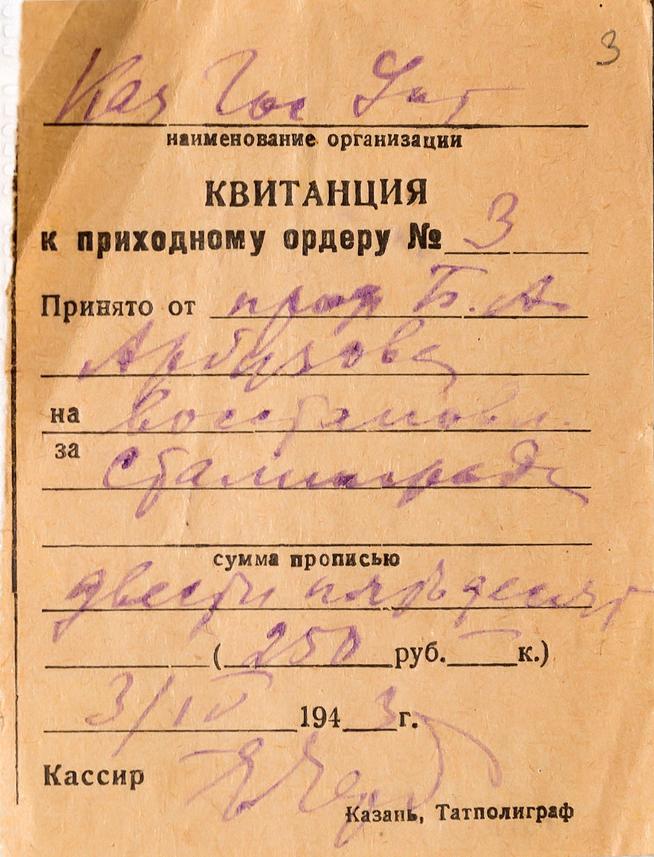 3
Каз Гос
наименование организации
КВИТАНЦИЯ
к приходному ордеру № 3
Принято от проф Б. А.
Арбузова
на восстановл.
за Сталинграда
сумма прописью
двести пятьдесят
( 250 руб. — к.)
3/IV 1943 г.
Кассир
Казань, Татполиграф